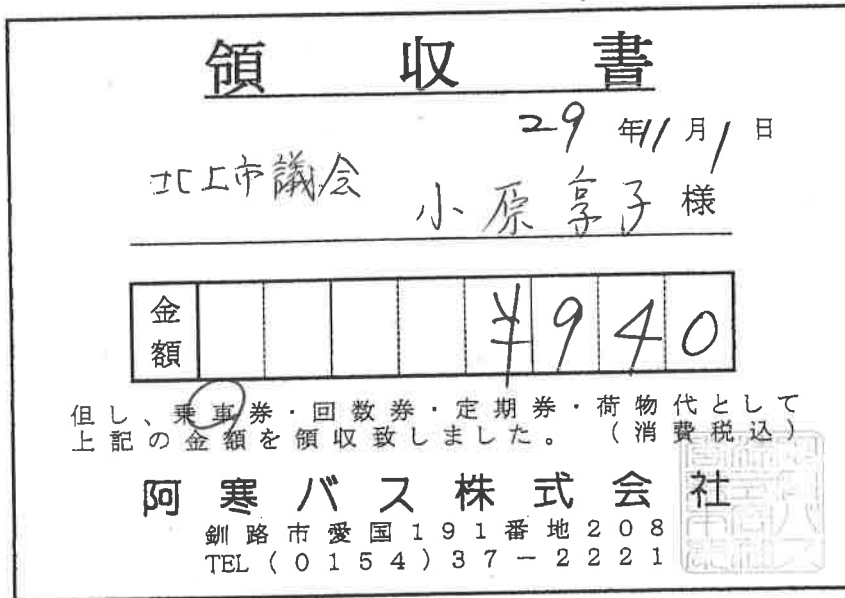 領収書
29年11月1日
北上市議会
小原享子様
金額 ¥940
但し、乗車券・回数券・定期券・荷物代として
上記の金額を領収致しました。（消費税込）
阿寒バス株式会社
釧路市愛国191番地208
TEL（0154）37－2221